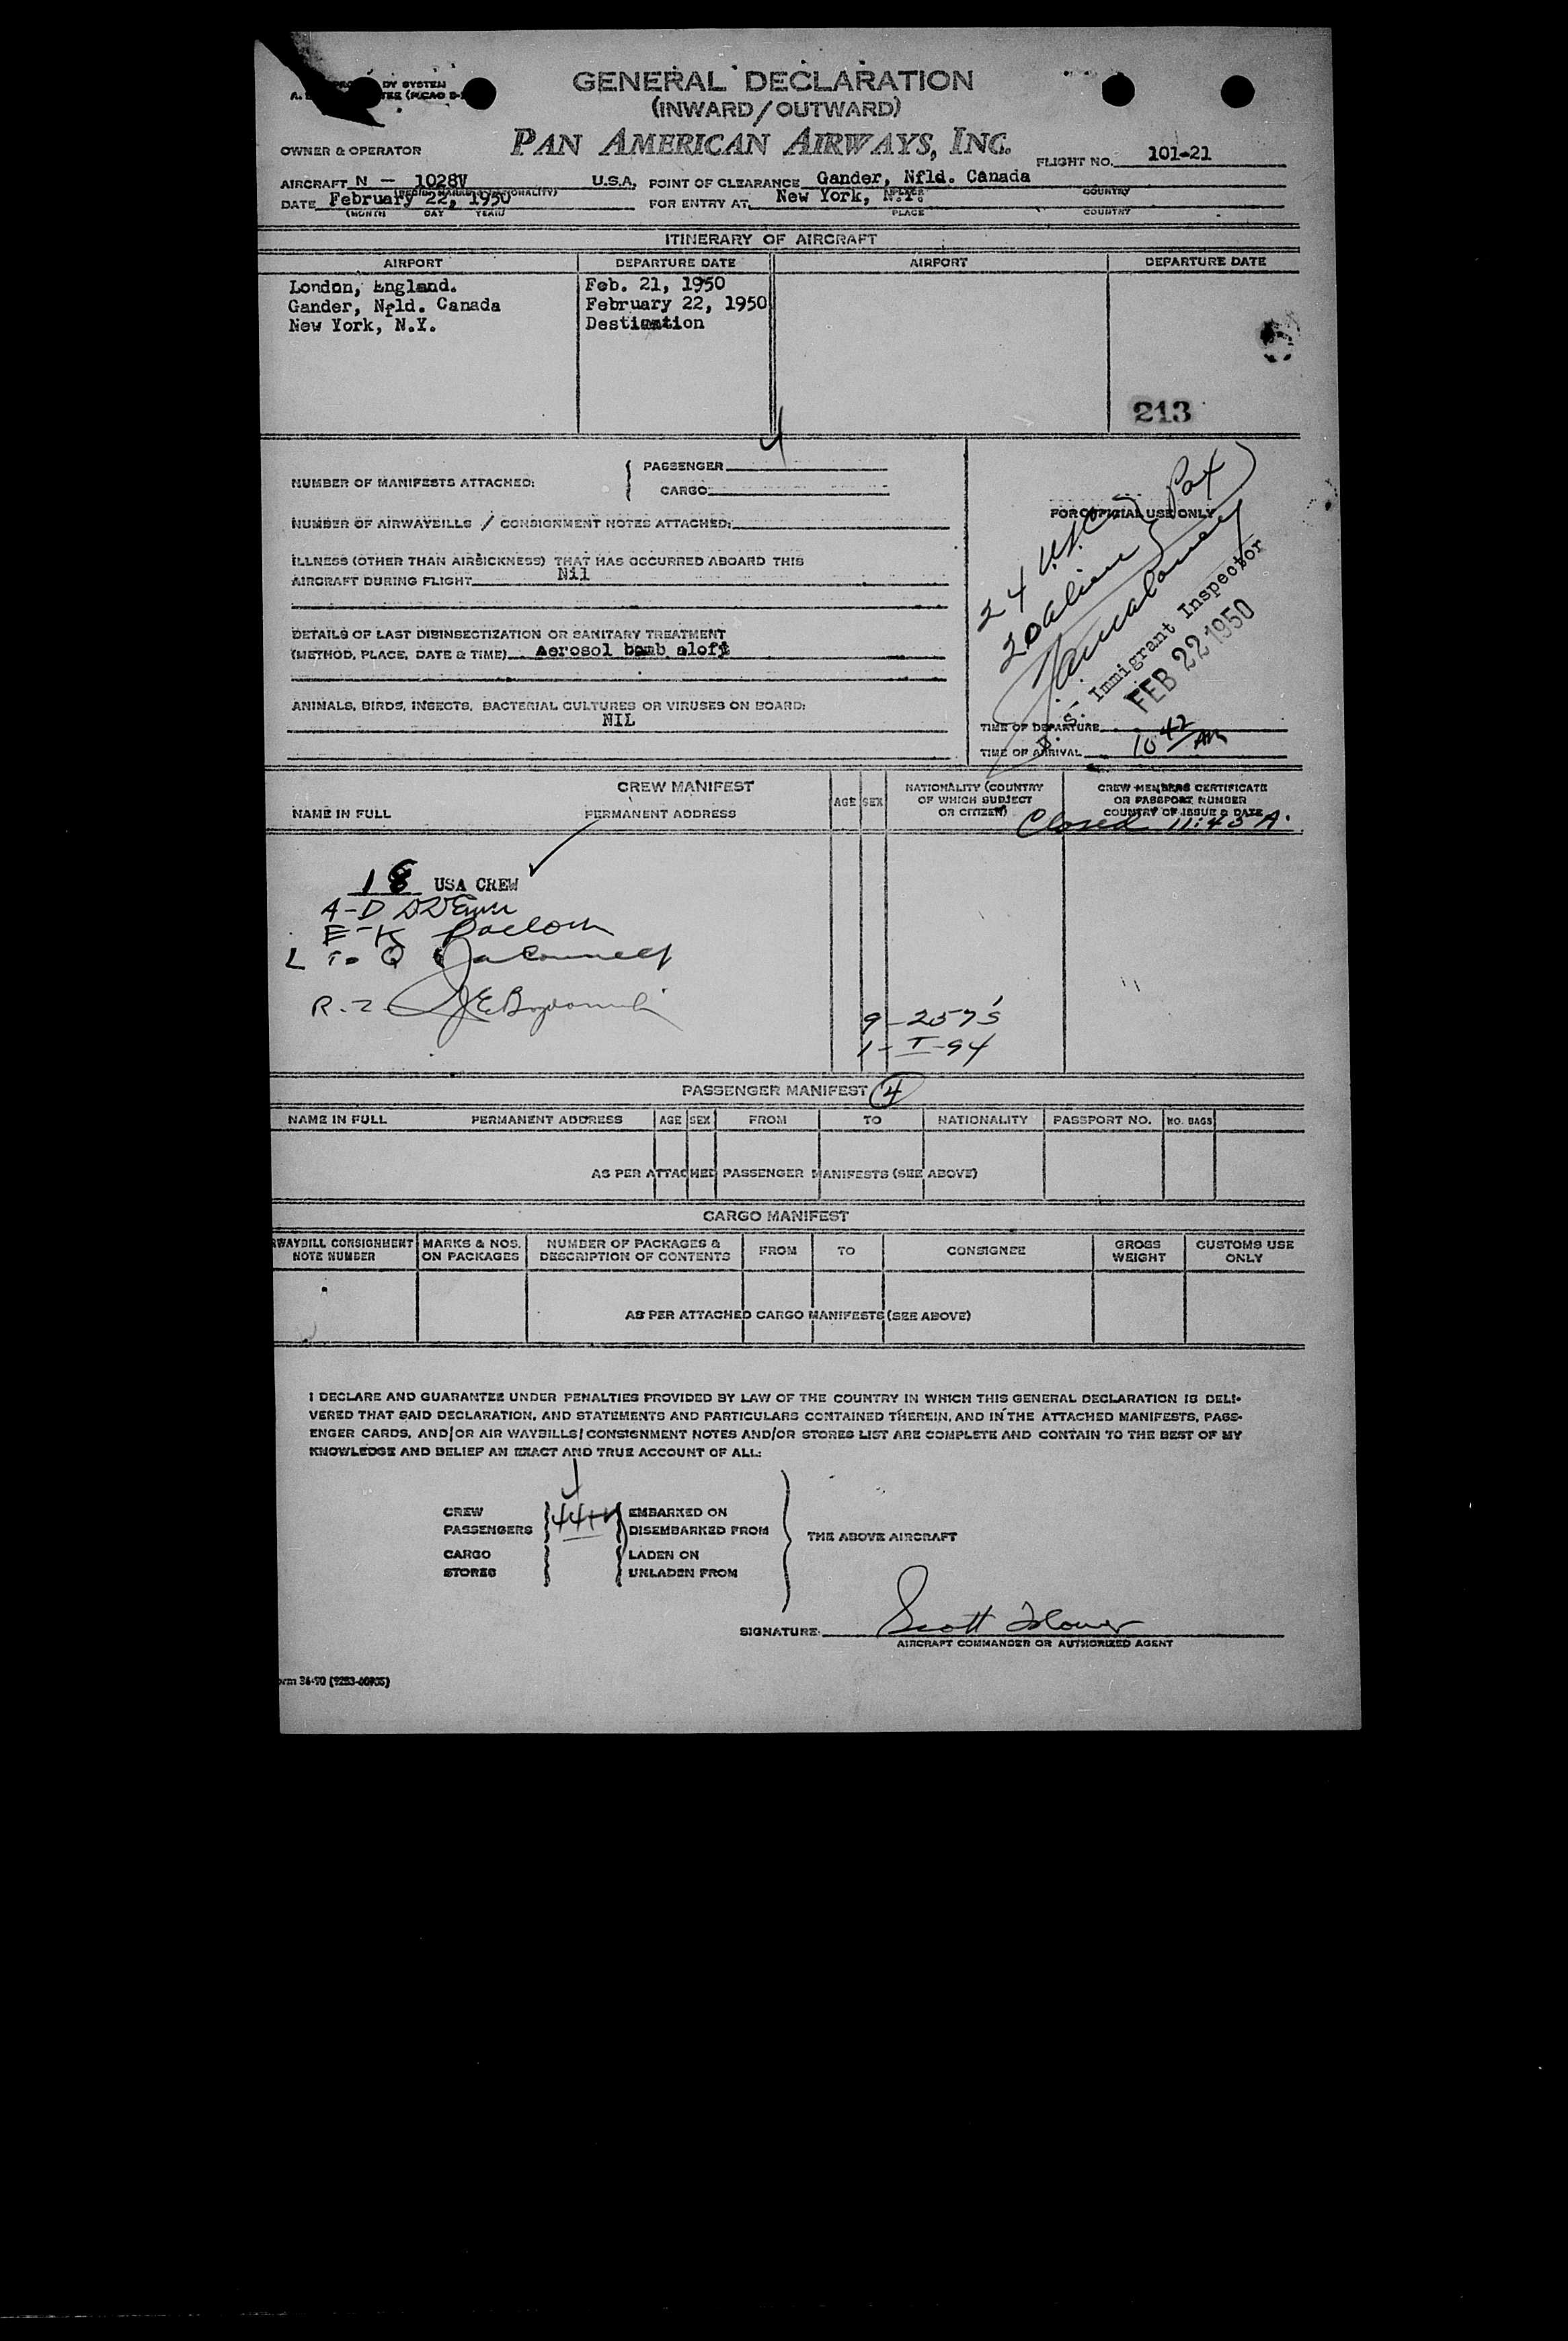 DY SYSTEM
GENERAL DECLARATION
(INWARD/OUTWARD)
PAN AMERICAN AIRWAYS, INC.
OWNER & OPERATOR
FLIGHT NO. 101-21
AIRCRAFT N - 1028V U.S.A. POINT OF CLEARANCE Gander, Nfld. Canada
DATE February 22, 1950 FOR ENTRY AT New York, N.Y.
(MONTH) DAY YEAR) PLACE COUNTRY
ITINERARY OF AIRCRAFT
AIRPORT DEPARTURE DATE AIRPORT DEPARTURE DATE
London, England. Feb. 21, 1950
Gander, Nfld. Canada February 22, 1950
New York, N.Y. Destination
213
4
NUMBER OF MANIFESTS ATTACHED: { PASSENGER
CARGO
NUMBER OF AIRWAYBILLS / CONSIGNMENT NOTES ATTACHED:
ILLNESS (OTHER THAN AIRSICKNESS) THAT HAS OCCURRED ABOARD THIS
AIRCRAFT DURING FLIGHT Nil
DETAILS OF LAST DISINSECTIZATION OR SANITARY TREATMENT
(METHOD, PLACE, DATE & TIME) Aerosol bomb aloft
ANIMALS, BIRDS, INSECTS, BACTERIAL CULTURES OR VIRUSES ON BOARD:
NIL
FOR OFFICIAL USE ONLY
24 USC } Pax
20 alien
U. S. Immigrant Inspector
FEB 22 1950
TIME OF DEPARTURE
TIME OF ARRIVAL 10 42 AM
CREW MANIFEST
NAME IN FULL PERMANENT ADDRESS AGE SEX NATIONALITY (COUNTRY OF WHICH SUBJECT OR CITIZEN) CREW MEMBERS CERTIFICATE OR PASSPORT NUMBER COUNTRY OF ISSUE & DATE
Closed 11:43 A.
18 USA CREW
A-D
E-K
L To Q
R-Z
9-257's
1-I-94
PASSENGER MANIFEST 4
NAME IN FULL PERMANENT ADDRESS AGE SEX FROM TO NATIONALITY PASSPORT NO. NO. BAGS
AS PER ATTACHED PASSENGER MANIFESTS (SEE ABOVE)
CARGO MANIFEST
RWAYBILL CONSIGNMENT NOTE NUMBER MARKS & NOS. ON PACKAGES NUMBER OF PACKAGES & DESCRIPTION OF CONTENTS FROM TO CONSIGNEE GROSS WEIGHT CUSTOMS USE ONLY
AS PER ATTACHED CARGO MANIFESTS (SEE ABOVE)
I DECLARE AND GUARANTEE UNDER PENALTIES PROVIDED BY LAW OF THE COUNTRY IN WHICH THIS GENERAL DECLARATION IS DELI-
VERED THAT SAID DECLARATION, AND STATEMENTS AND PARTICULARS CONTAINED THEREIN, AND IN THE ATTACHED MANIFESTS, PASS-
ENGER CARDS, AND/OR AIR WAYBILLS/CONSIGNMENT NOTES AND/OR STORES LIST ARE COMPLETE AND CONTAIN TO THE BEST OF MY
KNOWLEDGE AND BELIEF AN EXACT AND TRUE ACCOUNT OF ALL:
CREW EMBARKED ON
PASSENGERS 44 DISEMBARKED FROM THE ABOVE AIRCRAFT
CARGO LADEN ON
STORES UNLADEN FROM
SIGNATURE: Scott Flower
AIRCRAFT COMMANDER OR AUTHORIZED AGENT
orm 36-90